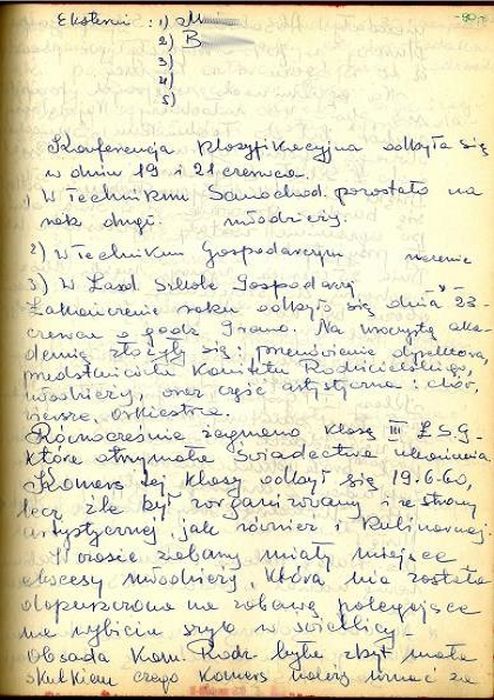 Eksterni : 1) M
2) B
3)
4)
5)
Konferencja klasyfikacyjna odbyła się
w dniu 19 i 21 czerwca.
1) W Technikum Samochod. pozostało na
rok drugi. młodzieży.
2) W Technikum Gospodarczym
3) W Zasad. Szkole Gospodarj. -"-
Zakończenie roku odbyło się dnia 23-
czerwca o godz 9 rano. Na uroczystą aka-
demię złożyły się: przemówienie dyrektora,
przedstawiciela Komitetu Rodzicielskiego,
młodzieży, oraz część artystyczna: chór,
wiersze, orkiestra.
Równocześnie żegnano klasę III Z.S.G-
które otrzymała świadectwa ukończenia.
Komers tej klasy odbył się 19.6.60,
lecz źle był zorganizowany i ze strony
artystycznej, jak również i kulinarnej.
W czasie zabawy miały miejsce
ekscesy młodzieży, która nie została
dopuszczona na zabawę polegające
na wybiciu szyb w świetlicy-
Obsada Kom. Rodz. była zbyt mała
skutkiem czego Komers należy uznać za